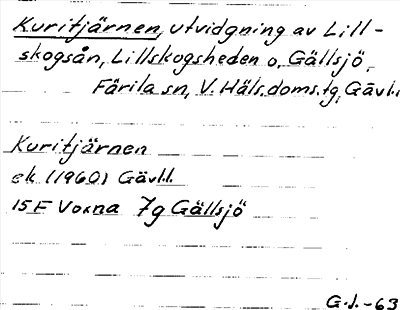 Kuritjärnen, utvidgning av Lill-
skogsån, Lillskogsheden o. Gällsjö,
Färila sn, V. Häls. doms.tg, Gävl.l.
Kuritjärnen
ek (1960) Gävl.l.
15 F Voxna 7g Gällsjö
G.J. -63